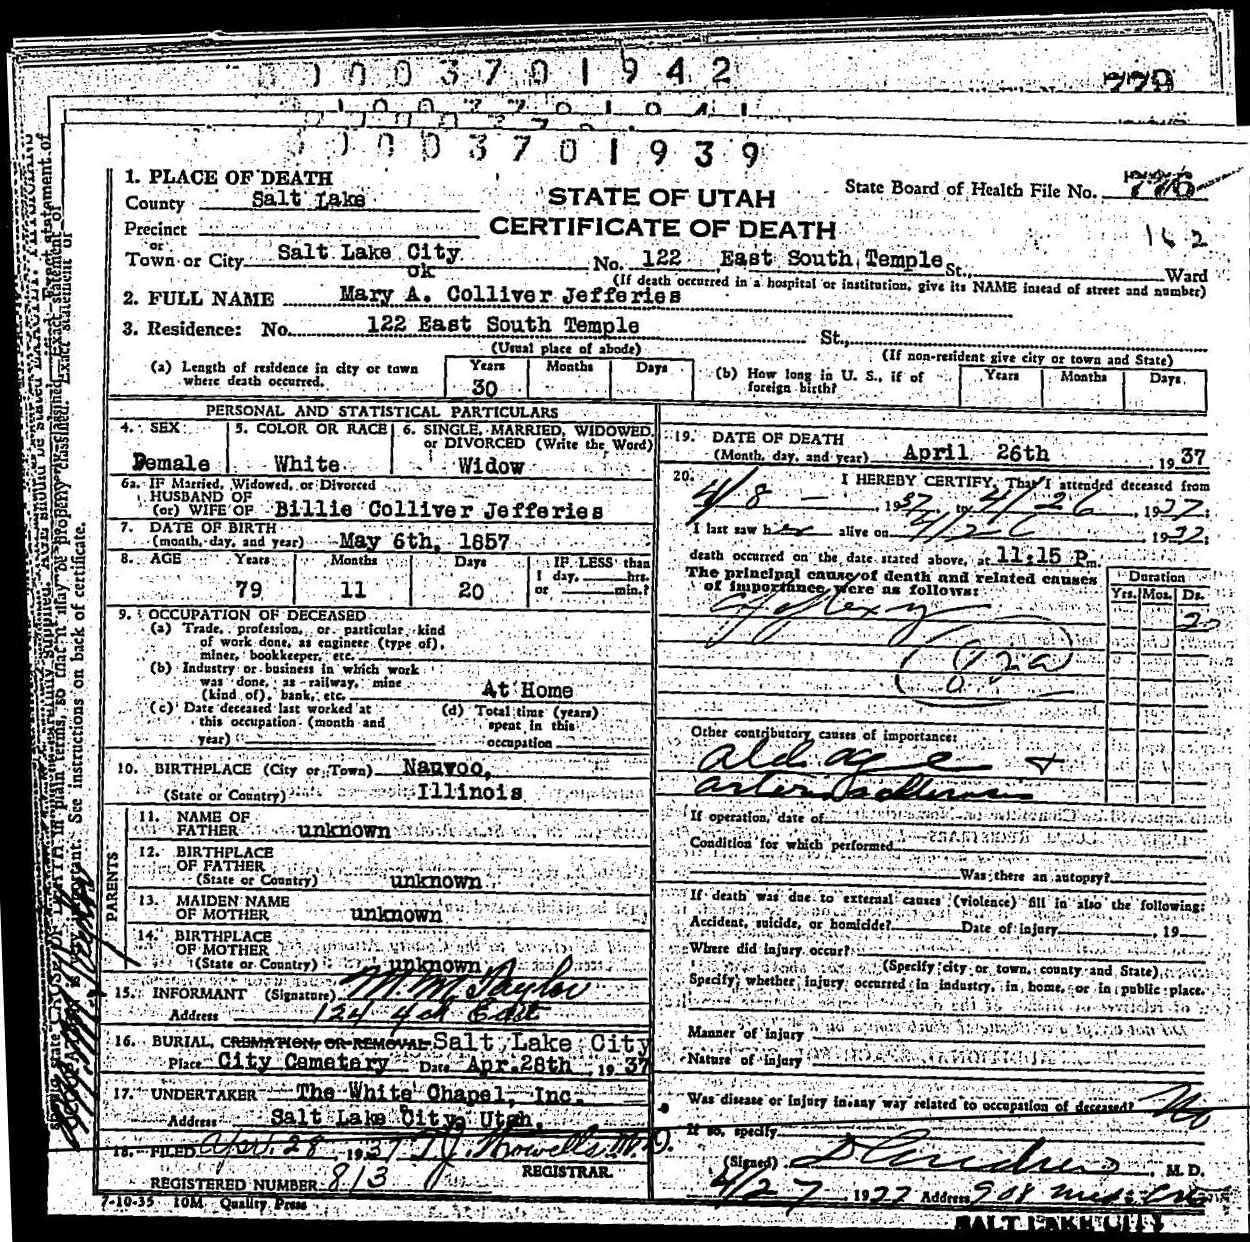 0003701942
779
0003701939
1. PLACE OF DEATH
County Salt Lake
STATE OF UTAH
State Board of Health File No. 776
Precinct
CERTIFICATE OF DEATH
162
or
Town or City Salt Lake City No. 122 East South Temple St., Ward
ok
(If death occurred in a hospital or institution, give its NAME insead of street and number)
2. FULL NAME Mary A. Colliver Jefferies
3. Residence: No. 122 East South Temple St.,
(Usual place of abode)
(If non-resident give city or town and State)
(a) Length of residence in city or town
where death occurred.
Years Months Days
30
(b) How long in U. S., if of
foreign birth?
Years Months Days
PERSONAL AND STATISTICAL PARTICULARS
4. SEX 5. COLOR OR RACE 6. SINGLE, MARRIED, WIDOWED,
or DIVORCED (Write the Word)
Female White Widow
6a. IF Married, Widowed, or Divorced
HUSBAND OF
(or) WIFE OF Billie Colliver Jefferies
7. DATE OF BIRTH
(month, day, and year) May 6th, 1857
8. AGE Years Months Days IF LESS than
1 day, hrs.
or min.?
79 11 20
9. OCCUPATION OF DECEASED
(a) Trade, profession, or particular kind
of work done, as engineer (type of),
miner, bookkeeper, etc.
(b) Industry or business in which work
was done, as railway, mine
(kind of), bank, etc. At Home
(c) Date deceased last worked at
this occupation (month and
year)
(d) Total time (years)
spent in this
occupation
10. BIRTHPLACE (City or Town) Nauvoo,
(State or Country) Illinois
PARENTS
11. NAME OF
FATHER unknown
12. BIRTHPLACE
OF FATHER
(State or Country) unknown
13. MAIDEN NAME
OF MOTHER unknown
14. BIRTHPLACE
OF MOTHER
(State or Country) unknown
15. INFORMANT (Signature) M. M. Naylor
Address 124 4th East
16. BURIAL, CREMATION, OR REMOVAL Salt Lake City
Place City Cemetery Date Apr.28th, 1937
17. UNDERTAKER The White Chapel, Inc.
Address Salt Lake City, Utah.
18. FILED Apr. 28, 1937 T. J. Howells M.D.
REGISTRAR.
REGISTERED NUMBER 813
7-10-35 10M Quality Press
19. DATE OF DEATH
(Month, day, and year) April 26th 1937
20. I HEREBY CERTIFY, That I attended deceased from
4/8 — , 1937, to 4/26, 1937;
I last saw her alive on 4/26 1937;
death occurred on the date stated above, at 11:15 P m.
The principal cause of death and related causes
of importance were as follows:
Duration
Yrs. Mos. Ds.
Apoplexy 20
(82a)
Other contributory causes of importance:
old age +
arteriosclerosis
If operation, date of
Condition for which performed
Was there an autopsy?
If death was due to external causes (violence) fill in also the following:
Accident, suicide, or homicide? Date of injury , 19
Where did injury occur?
(Specify city or town, county and State)
Specify whether injury occurred in industry, in home, or in public place.
Manner of injury
Nature of injury
Was disease or injury in any way related to occupation of deceased? No
If so, specify
(Signed) M. D.
4/27, 1937 Address 908 Med.
SALT LAKE CITY
See instructions on back of certificate.